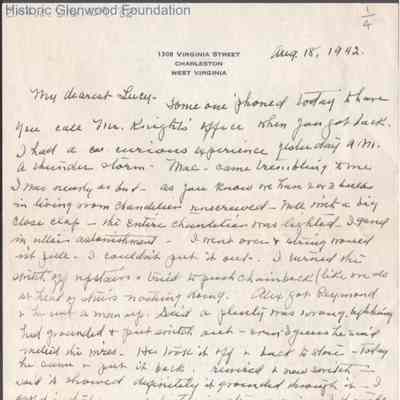 Historic Glenwood Foundation
1/4
1308 VIRGINIA STREET
CHARLESTON
WEST VIRGINIA
Aug. 18, 1942.
My dearest Lucy - Some one 'phoned today to have
you call Mr. Knight's office when you got back.
I had a curious experience yesterday A.M.
a thunder storm - Mac - came trembling to me
I was nearly as bad - as you know we have 2 or 3 bulbs
in living room chandelier unscrewed - Well with a big
close clap - the entire chandelier was lighted. I
in utter astonishment - I went over & string
I couldn't put it out - I turned the
switch off upstairs & tried to push chain back (like we do
at head of stairs nothing doing. Alex got Raymond
& he sent a man up. Said a plenty was wrong, lightning
had grounded & put switch out - even I guess he said
melted the wires. He took it off & back to store - today
he came & put it back. rewired & new switch -
said it showed definitely it grounded through it - I